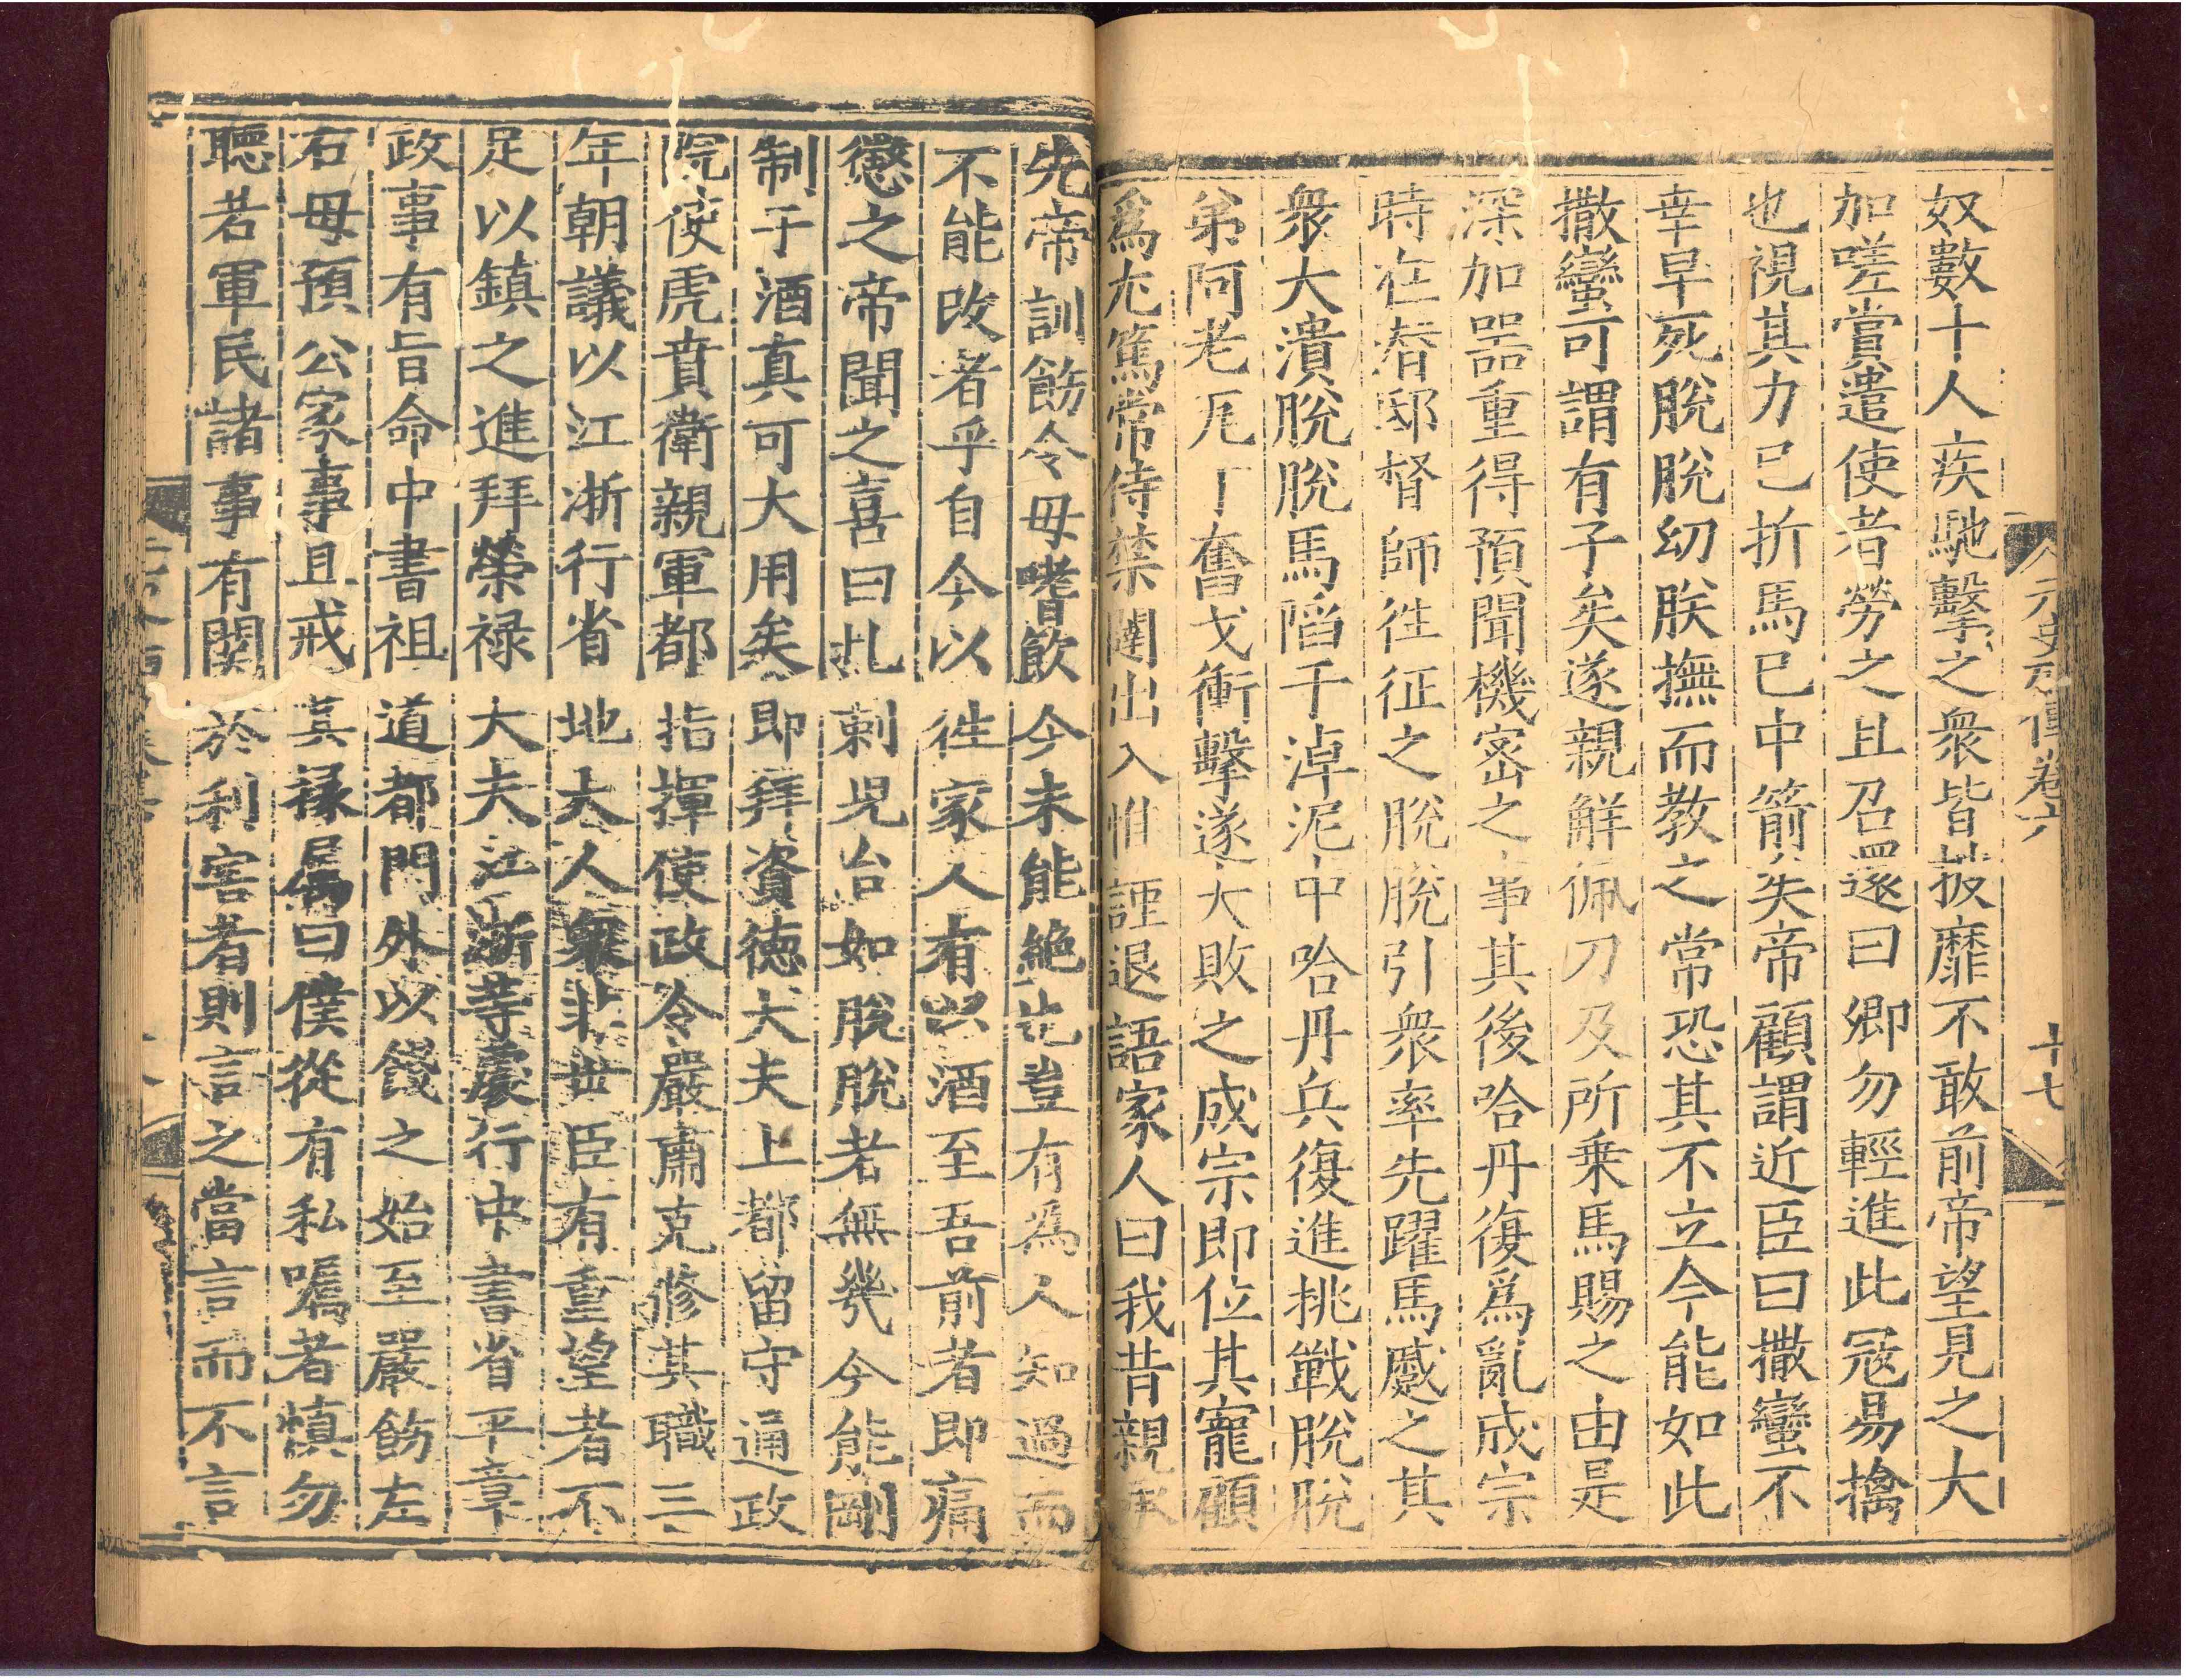 奴數十人疾馳擊之衆皆披靡不敢前帝望見之大
加嗟賞遣使者勞之且召還曰卿勿輕進此冦易擒
也視其力已折馬已中箭矣帝顧謂近臣曰撒蠻不
幸早死脫脫幼朕撫而教之常恐其不立今能如此
撒蠻可謂有子矣遂親觧佩刀及所乗馬賜之由是
深加噐重得預聞機宻之事其後哈丹復爲亂成宗
時在潛邸督師徃征之脫脫引衆率先躍馬蹙之其
衆大潰脫脫馬䧟于淖泥中哈丹兵復進挑戰脫脫
弟阿老瓦丁奮戈衝擊遂大敗之成宗即位其寵顧
爲尤篤常侍禁闥出入惟謹退語家人曰我昔親承
元史列傳卷六
十七
先帝訓飭令毋嗜飲今未能絶也豈有爲人知過而
不能改者乎自今以徃家人有以酒至吾前者即痛
懲之帝聞之喜曰扎剌児台如脫脫者無幾今能剛
制于酒真可大用矣即拜資徳大夫上都留守通政
院使虎賁衛親軍都指揮使政令嚴肅克修其職三
年朝議以江浙行省地大人衆非世臣有重望者不
足以鎮之進拜榮禄大夫江浙等處行中書省平章
政事有旨命中書祖道都門外以餞之始至嚴飭左
右毋預公家事且戒其掾属曰僕從有私嘱者慎勿
聽若軍民諸事有関於利害者則言之當言而不言